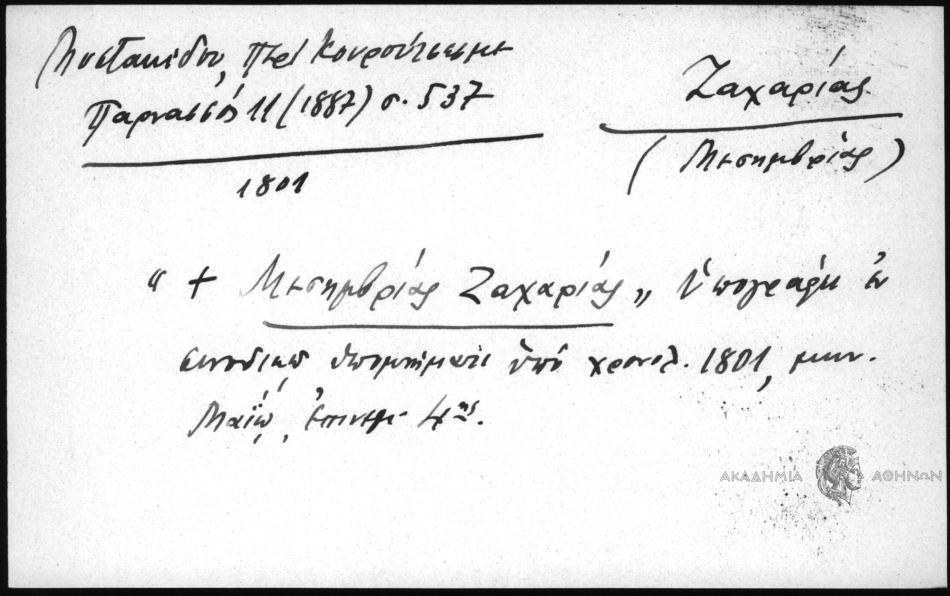 Μυστακίδου, Περί Κουρούτσεσμε
Παρνασσός 11 (1887) σ. 537
1801
Ζαχαρίας
(Μεσημβρίας)
“ + Μεσημβρίας Ζαχαρίας „ Ὑπογράφει ἐν
συνοδικῷ ὑπομνήματι ὑπό χρονολ. 1801, μην.
Μαΐῳ, Ἐπινεμ. 4ης.
ΑΚΑΔΗΜΙΑ ΑΘΗΝΩΝ